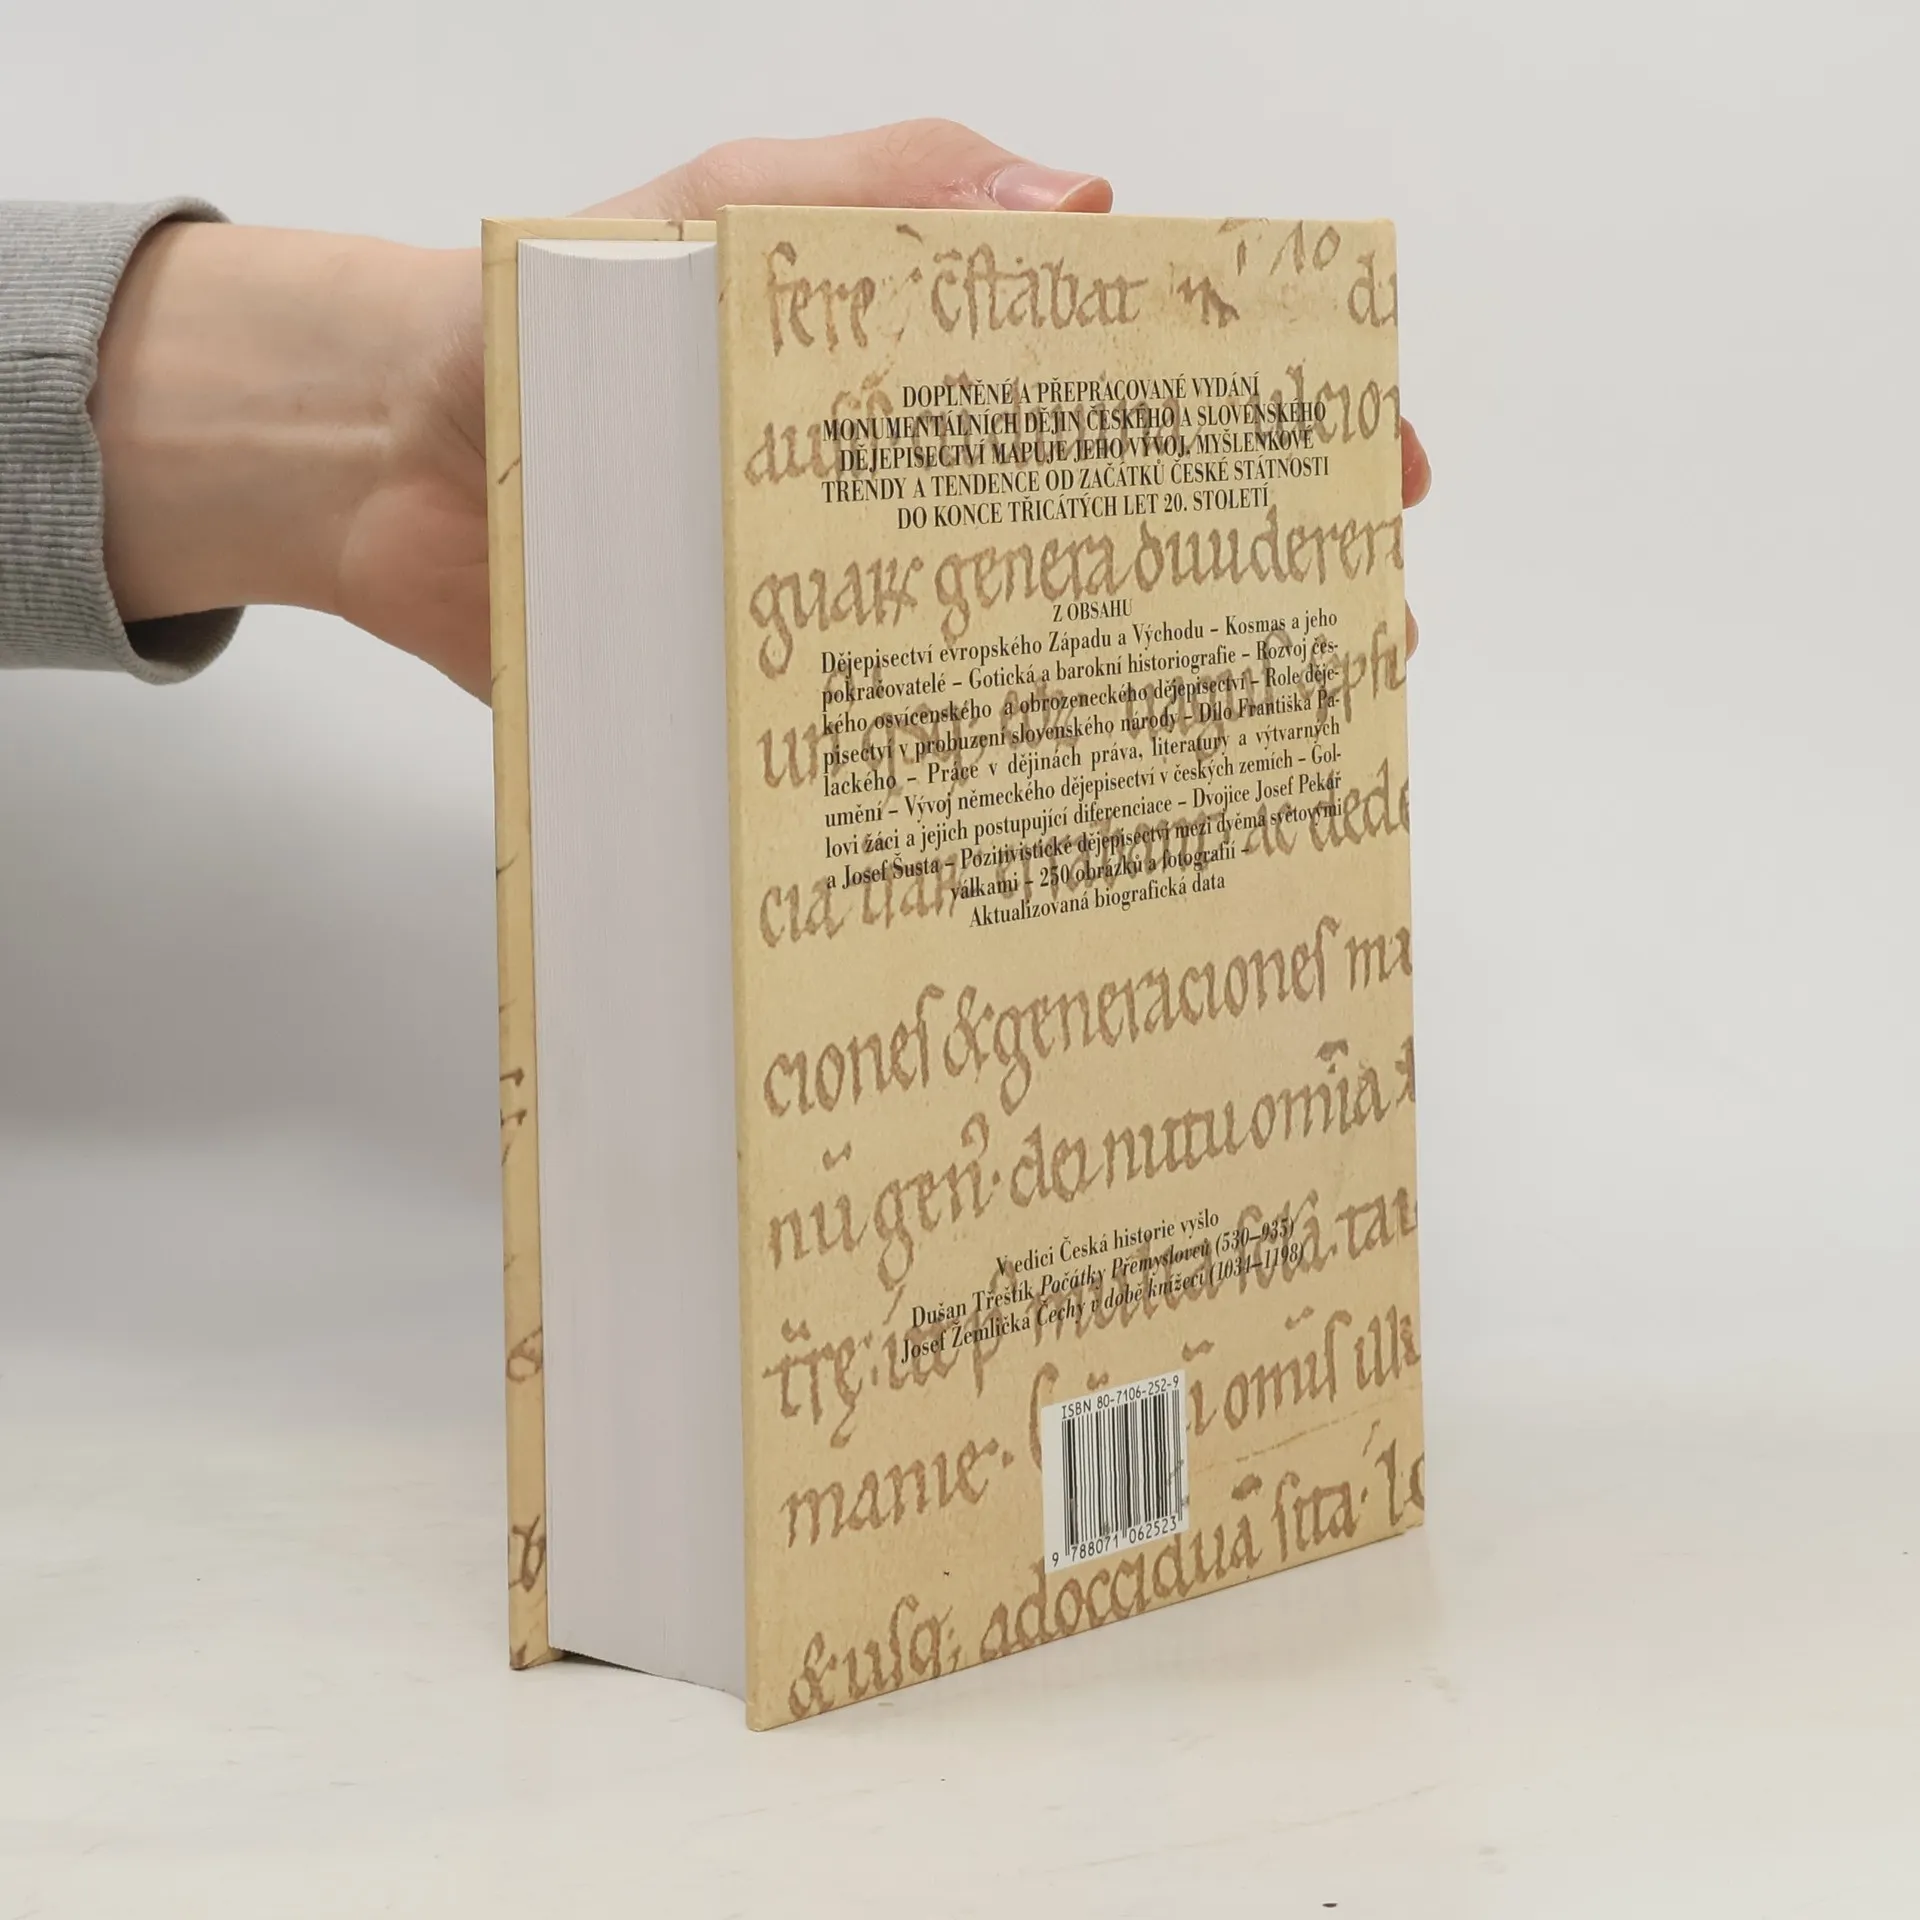 fere c̄stabat
DOPLNĚNÉ A PŘEPRACOVANÉ VYDÁNÍ
MONUMENTÁLNÍCH DĚJIN ČESKÉHO A SLOVENSKÉHO
DĚJEPISECTVÍ MAPUJE JEHO VÝVOJ, MYŠLENKOVÉ
TRENDY A TENDENCE OD ZAČÁTKŮ ČESKÉ STÁTNOSTI
DO KONCE TŘICÁTÝCH LET 20. STOLETÍ
genera
Z OBSAHU
Dějepisectví evropského Západu a Východu – Kosmas a jeho
pokračovatelé – Gotická a barokní historiografie – Rozvoj čes-
kého osvícenského a obrozeneckého dějepisectví – Role děje-
pisectví v probuzení slovenského národy – Dílo Františka Pa-
lackého – Práce v dějinách práva, literatury a výtvarných
umění – Vývoj německého dějepisectví v českých zemích – Gol-
lovi žáci a jejich postupující diferenciace – Dvojice Josef Pekař
a Josef Šusta – Pozitivistické dějepisectví mezi dvěma světovými
válkami – 250 obrázků a fotografií –
Aktualizovaná biografická data
cioneſ & generacioneſ
nū gen̄. dei nutu om̄ia
V edici Česká historie vyšlo
Dušan Třeštík Počátky Přemyslovců (530–935)
Josef Žemlička Čechy v době knížecí (1034–1198)
ISBN 80-7106-252-9
9 788071 062523
& uſq; ad occiduā ſita